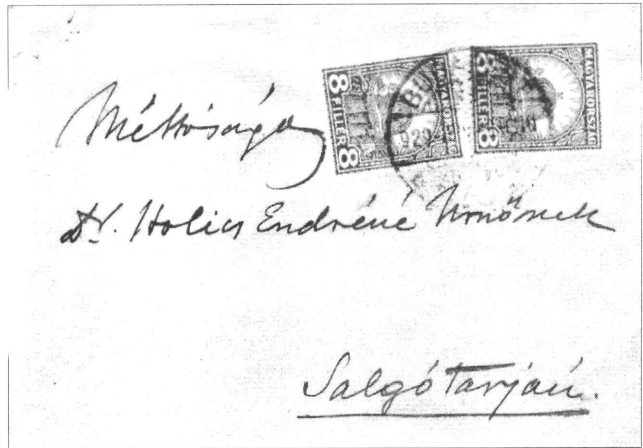 8 FILLÉR 8
MAGYARORSZÁG
8 FILLÉR 8
MAGYARORSZÁG
929
Méltóságos
Dr. Holics Endréné Urnőnek
Salgótarján.